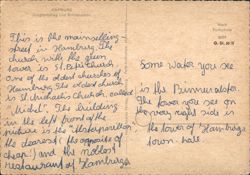 HAMBURG
This is the main selling-
street in Hamburg. The
church with the green
tower is St. Petri Church
one of the oldest churches of
Hamburg. The oldest church
is St. Michaelis Church, called
"Michel". The building
in the left front of the
picture is the
the dearest (the opposite of
cheap!) and the noblest
restaurant of Hamburg.
Some water you see
is the Binnenalster.
The tower you see on
the very right side is
the tower of Hamburgs
town hall.